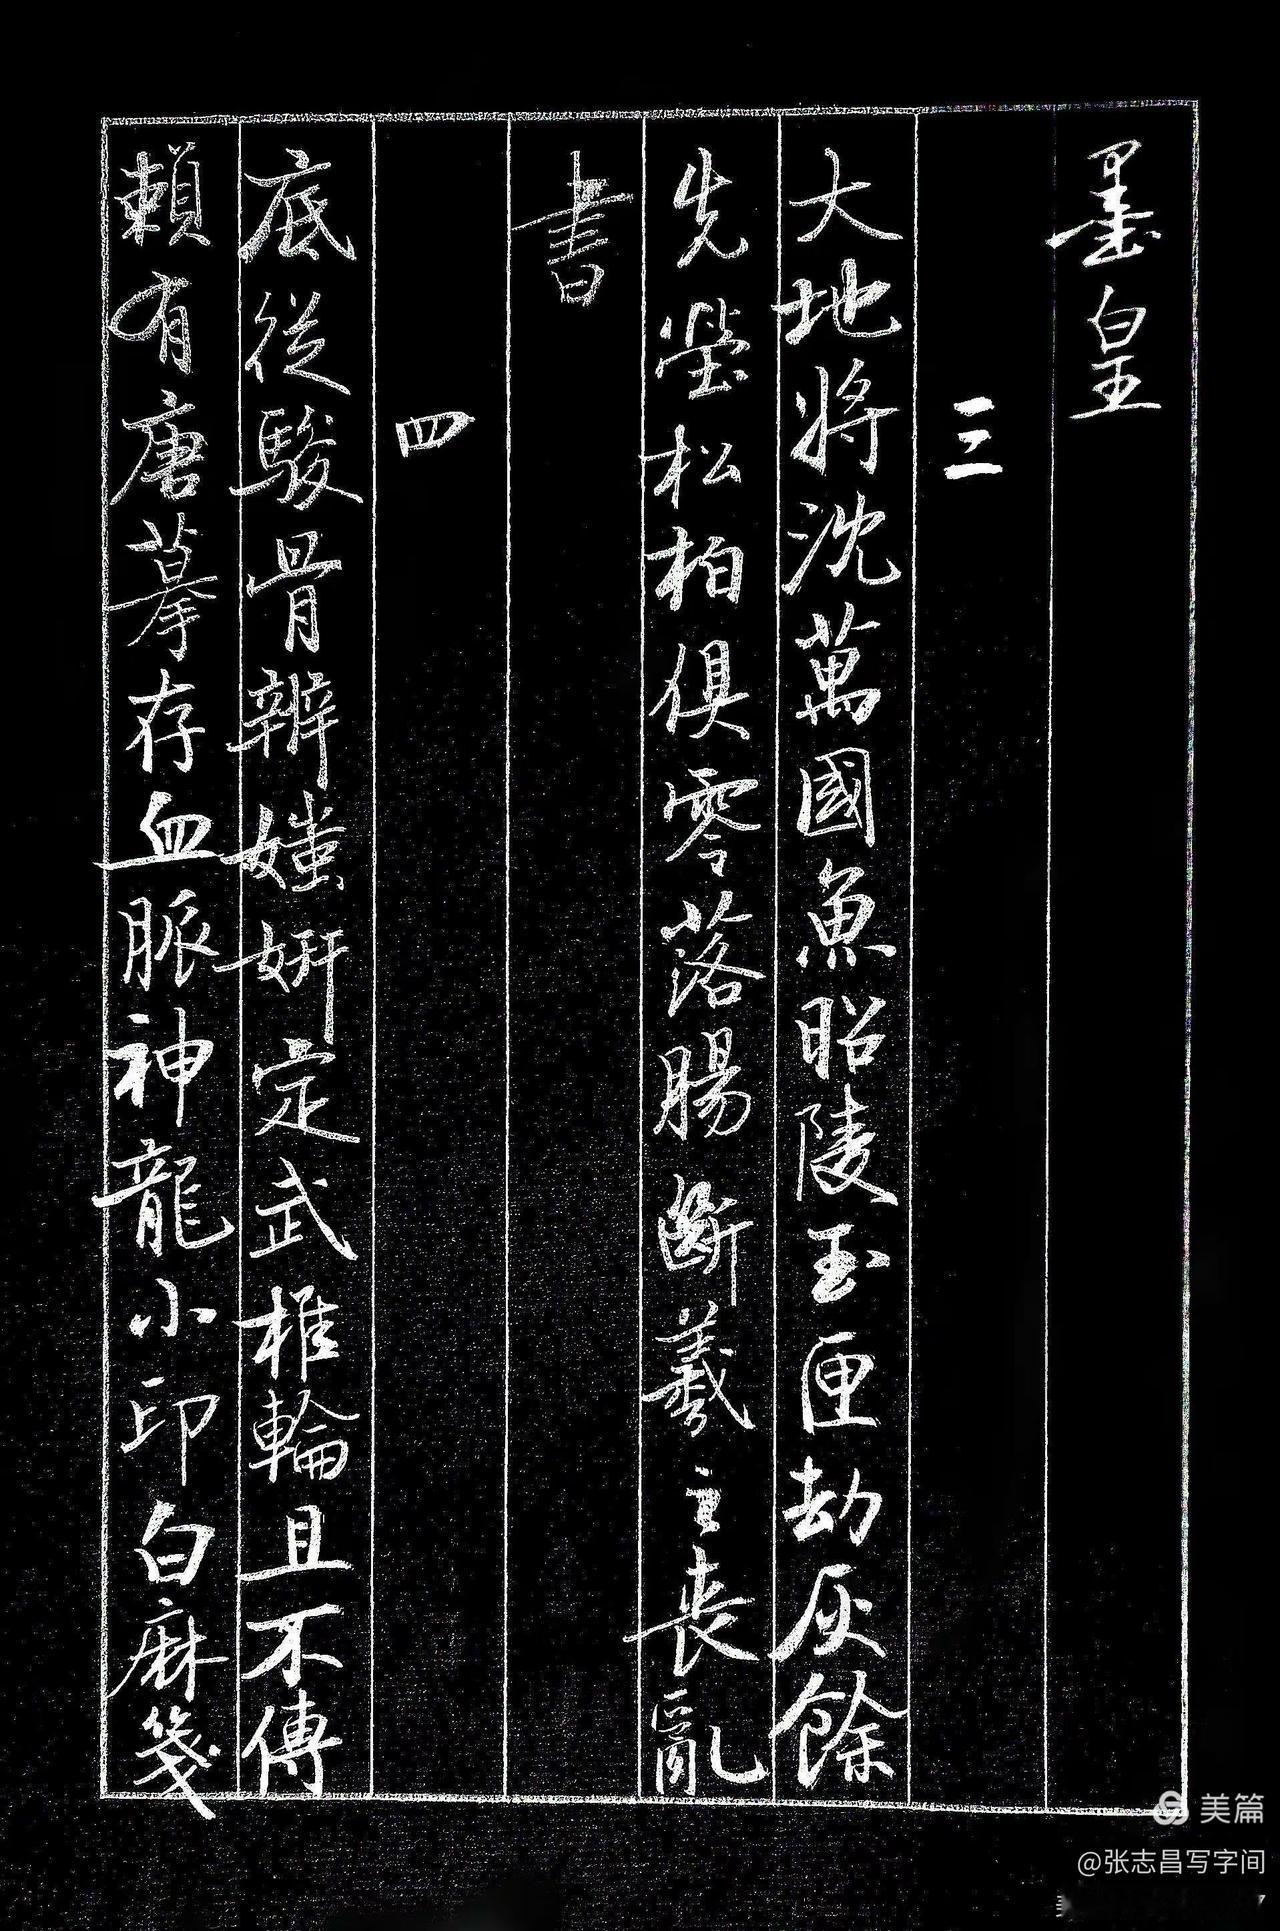 墨皇
三
大地將沈萬國魚昭陵玉匣劫灰餘
先塋松柏俱零落腸斷羲之喪亂
書
四
底從駿骨辨媸妍定武椎輪且不傳
賴有唐摹存血脈神龍小印白麻箋
美篇
@张志昌写字间